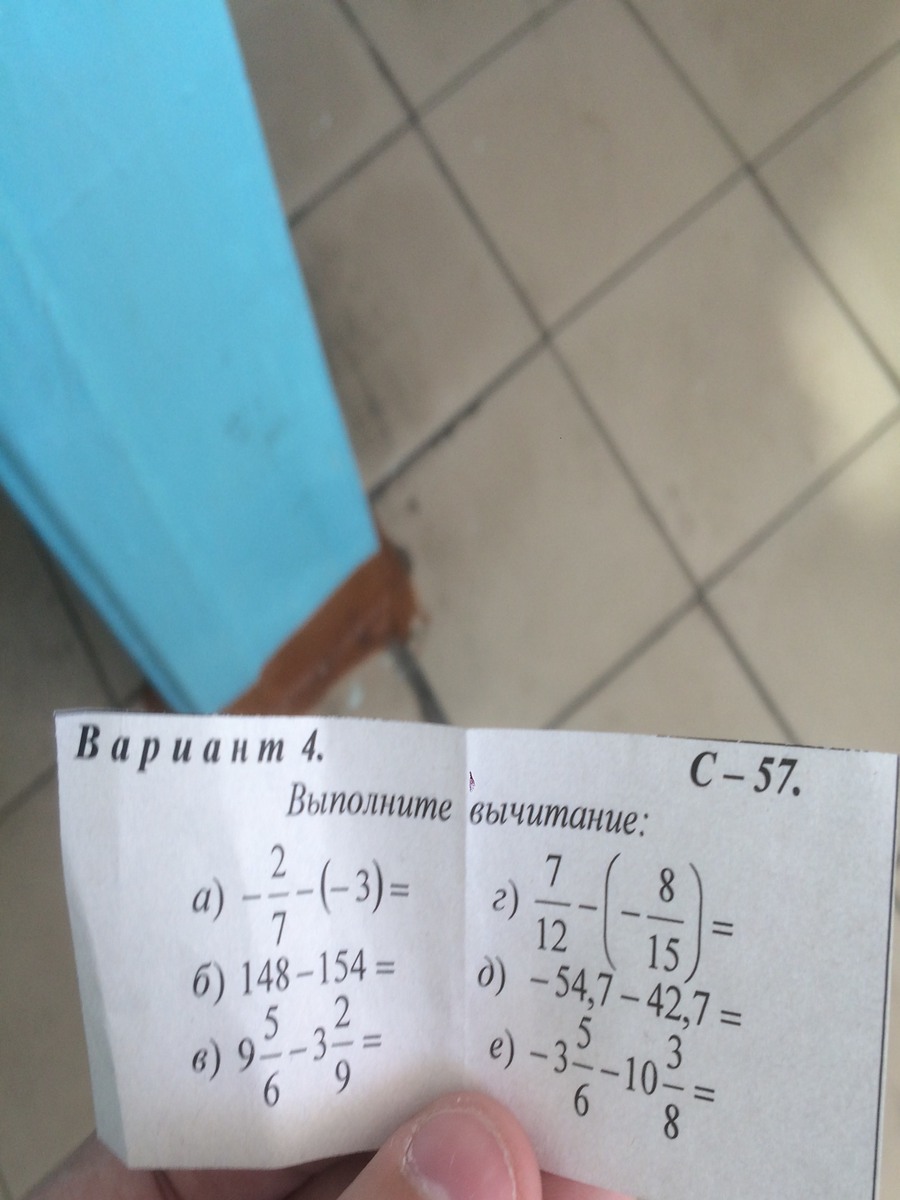 Вариант 4.
С – 57.
Выполните вычитание:
а) –2/7 – (–3) =
б) 148 – 154 =
в) 9 5/6 – 3 2/9 =
г) 7/12 – (–8/15) =
д) –54,7 – 42,7 =
е) –3 5/6 – 10 3/8 =